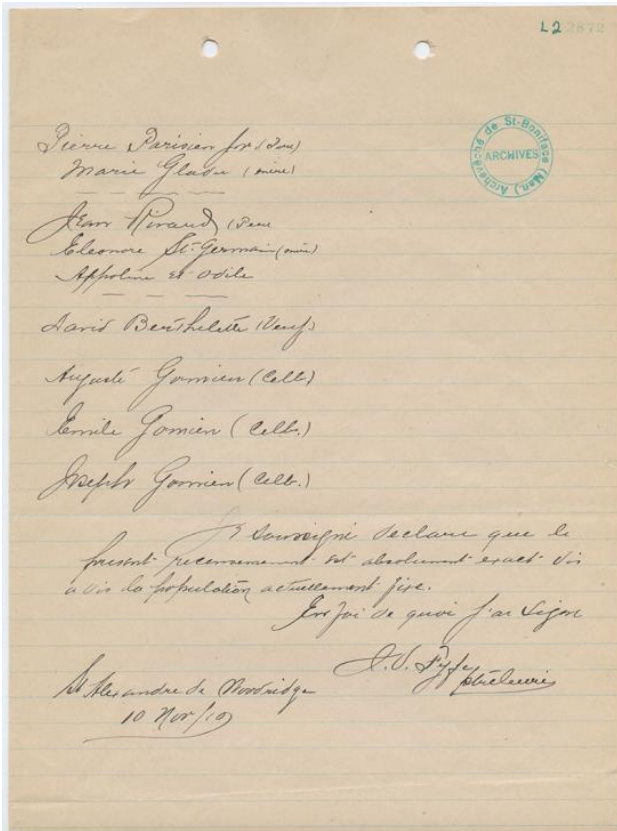 L2 2872
Archevêché de St-Boniface (Man.)
ARCHIVES
Pierre Parisien (Père)
Marie Gladu (mère)
Jean Rivard (Père
Eleonore St-Germain (mère)
Appoline et Odile
David Berthelette (Veuf)
Auguste Gomien (Celb.)
Emile Gomien (Celb.)
Joseph Gomien (Celb.)
Je soussigné declare que le
présent recensement est absolument exact vis
a vis la population actuellement fixe.
En foi de quoi j'ai signé
St Alexandre de Woodridge
10 Nov